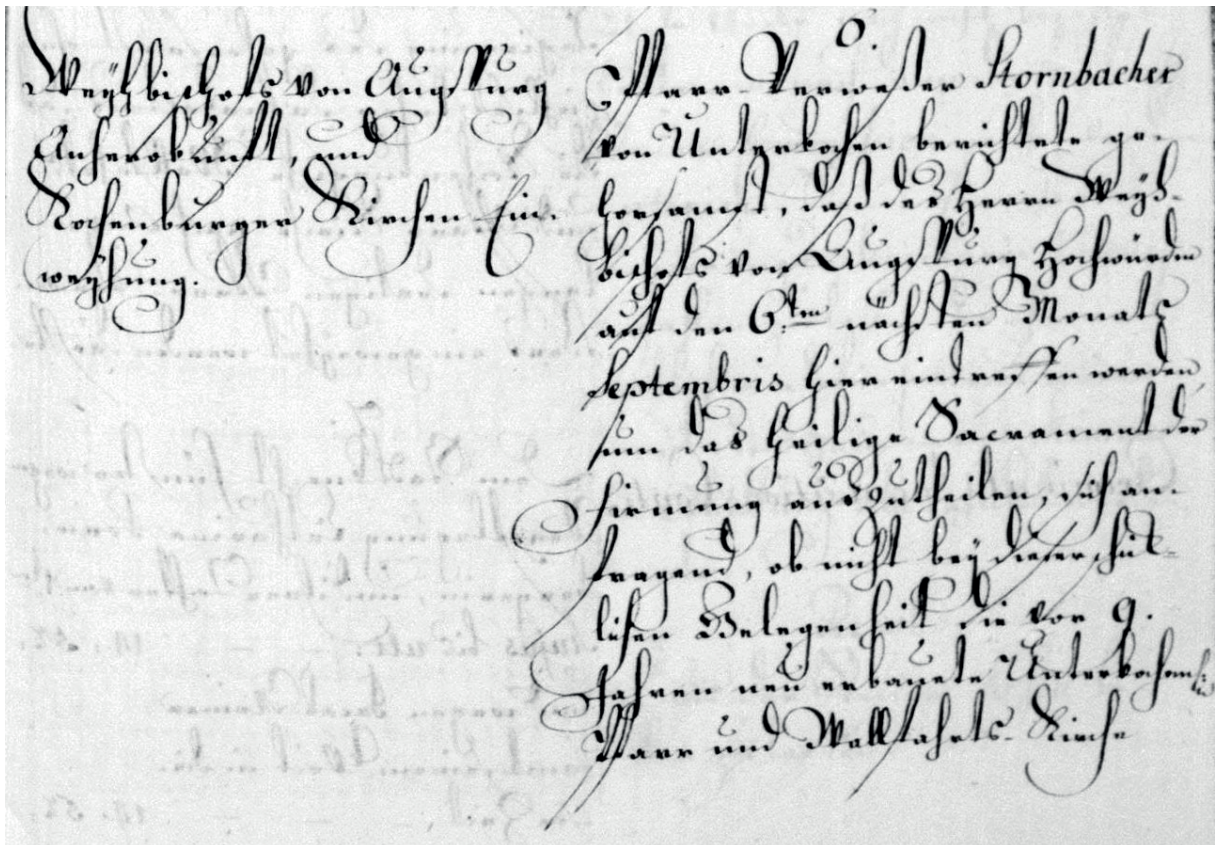 Weyhbischofs von Augspurg
Anherokunft, und
Kochenburger Kirchen Ein-
weyhung.
6.
Pfarr-Verweßer Stornbacher
von Unterkochen berichtete ge-
horsamst, daß des Herrn Weyh-
bischofs von Augspurg Hochwürden
auf den 6ten nächsten Monats
Septembris hier eintreffen werden,
um das heilige Sacrament der
Firmung auszutheilen, sich an-
fragend, ob nicht bey dieser
lichen Gelegenheit die vor 9.
Jahren neü erbauete Unterkochem
Pfarr und Wallfahrts-Kirche